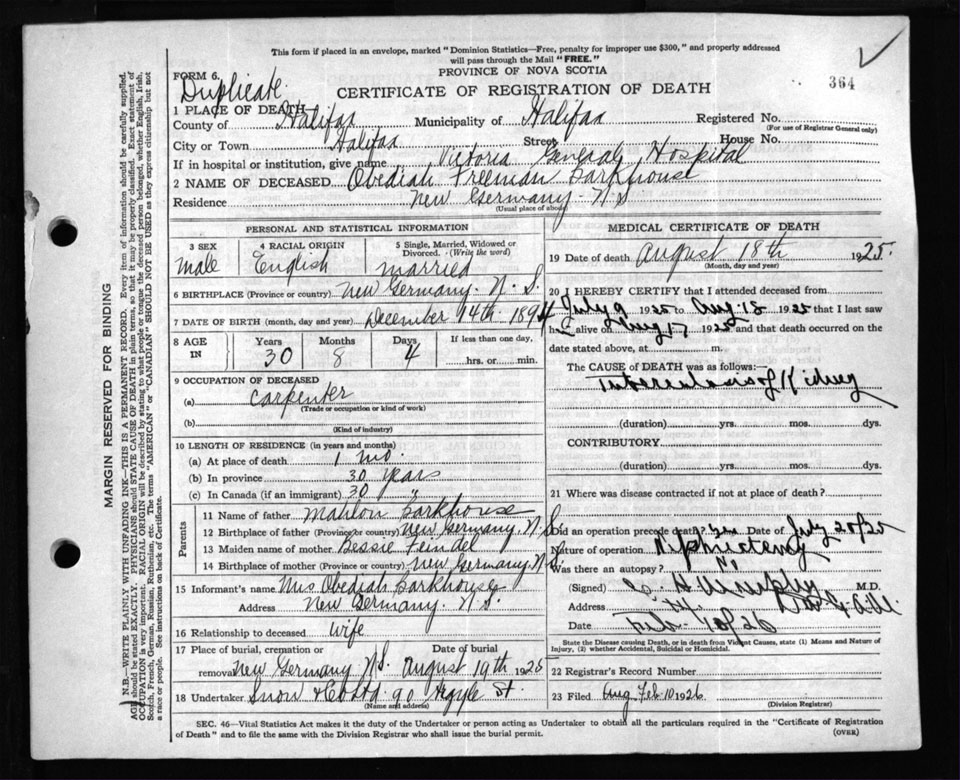 This form if placed in an envelope, marked "Dominion Statistics—Free, penalty for improper use $300," and properly addressed
will pass through the Mail "FREE."
FORM 6.
PROVINCE OF NOVA SCOTIA
364
Duplicate
CERTIFICATE OF REGISTRATION OF DEATH
1 PLACE OF DEATH
County of Halifax Municipality of Halifax Registered No.
(For use of Registrar General only)
City or Town Halifax Street House No.
If in hospital or institution, give name Victoria General Hospital
2 NAME OF DECEASED Obediah Freeman Barkhouse
Residence New Germany N S
(Usual place of abode)
PERSONAL AND STATISTICAL INFORMATION
3 SEX 4 RACIAL ORIGIN 5 Single, Married, Widowed or Divorced. (Write the word)
Male English Married
6 BIRTHPLACE (Province or country) New Germany. N. S.
7 DATE OF BIRTH (month, day and year) December 14th 1894
8 AGE IN Years Months Days If less than one day,
30 8 4 hrs. or min.
9 OCCUPATION OF DECEASED
(a) Carpenter
(Trade or occupation or kind of work)
(b)
(Kind of industry)
10 LENGTH OF RESIDENCE (in years and months)
(a) At place of death 1 mo.
(b) In province 30 years
(c) In Canada (if an immigrant) 30 "
Parents
11 Name of father Mahlon Barkhouse
12 Birthplace of father (Province or country) New Germany N. S.
13 Maiden name of mother Bessie Feindel
14 Birthplace of mother (Province or country) New Germany. N.S.
15 Informant's name Mrs Obediah Barkhouse
Address New Germany N. S.
16 Relationship to deceased Wife
17 Place of burial, cremation or removal Date of burial
New Germany N.S. August 19th 1925
18 Undertaker Snow 90 Argyle St.
(Name and address)
MEDICAL CERTIFICATE OF DEATH
19 Date of death August 18th 1925.
(Month, day and year)
20 I HEREBY CERTIFY that I attended deceased from
July 9 1925 to Aug. 18 1925 that I last saw
h alive on Aug 17 1925 and that death occurred on the
date stated above, at m.
The CAUSE OF DEATH was as follows:
Tuberculosis of Kidney
(duration) yrs. mos. dys.
CONTRIBUTORY.
(duration) yrs. mos. dys.
21 Where was disease contracted if not at place of death?
Did an operation precede death? yes Date of July 20/25
Nature of operation Nephrectomy
Was there an autopsy?
(Signed) M.D.
Address
Date Feb 10/26
State the Disease causing Death, or in death from Violent Causes, state (1) Means and Nature of
Injury, (2) whether Accidental, Suicidal or Homicidal.
22 Registrar's Record Number
23 Filed Aug Feb 10 1926
(Division Registrar)
SEC. 46—Vital Statistics Act makes it the duty of the Undertaker or person acting as Undertaker to obtain all the particulars required in the "Certificate of Registration
of Death" and to file the same with the Division Registrar who shall issue the burial permit.
(OVER)
MARGIN RESERVED FOR BINDING
N.B.—WRITE PLAINLY WITH UNFADING INK—THIS IS A PERMANENT RECORD. Every item of information should be carefully supplied.
AGE should be stated EXACTLY. PHYSICIANS should STATE CAUSE OF DEATH in plain terms, so that it may be properly classified. Exact statement of
OCCUPATION is very important. RACIAL ORIGIN will be described by stating to what people or tongue the deceased person belonged, whether English, Irish,
Scotch, French, German, Russian, Ruthenian, etc. The terms "AMERICAN" or "CANADIAN" SHOULD NOT BE USED as they express citizenship but not
a race or people. See instructions on back of Certificate.